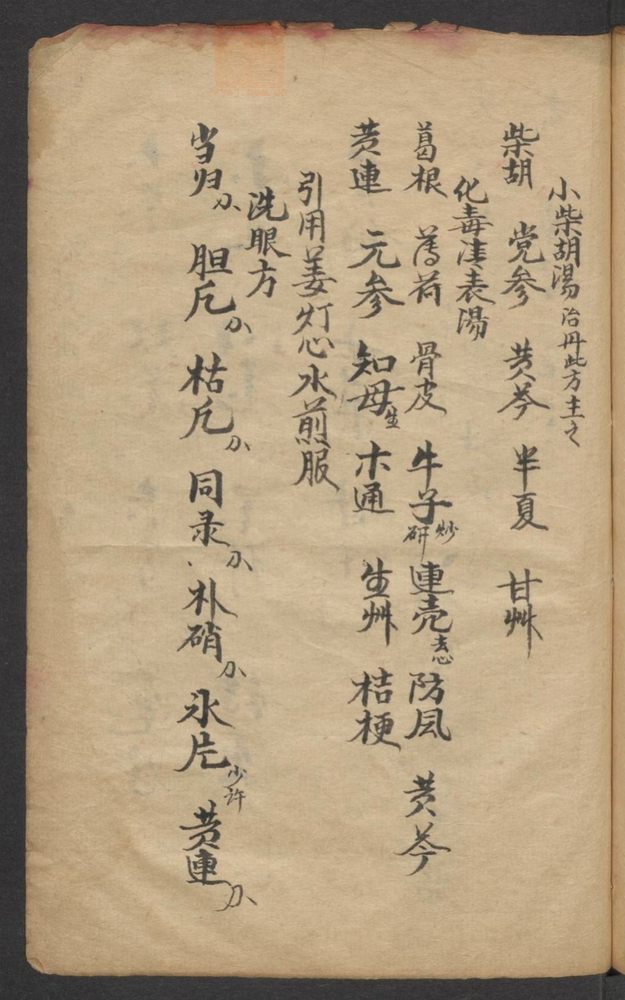 小柴胡湯 治丹此方主之
柴胡 党参 黄芩 半夏 甘艸
化毒清表湯
葛根 薄荷 骨皮 牛子炒研 連壳去心 防风 黄芩
黄連 元参 知母生 木通 生艸 桔梗
引用姜灯心水煎服
洗眼方
当归 胆凡 枯凡 同录 朴硝 氷片少许 黄連